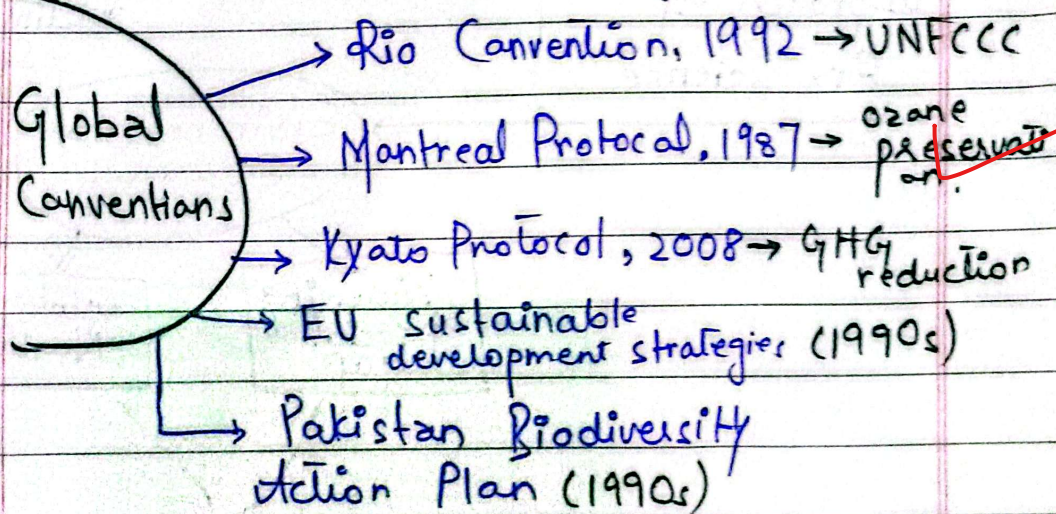 Global
Canventians
Rio Canvention, 1992 → UNFCCC
Mantreal Protocal, 1987 → ozane
preservati
an.
Kyato Protocol, 2008 → GHG
reduction
EU sustainable
development strategies (1990s)
Pakistan Biodiversity
Action Plan (1990s)